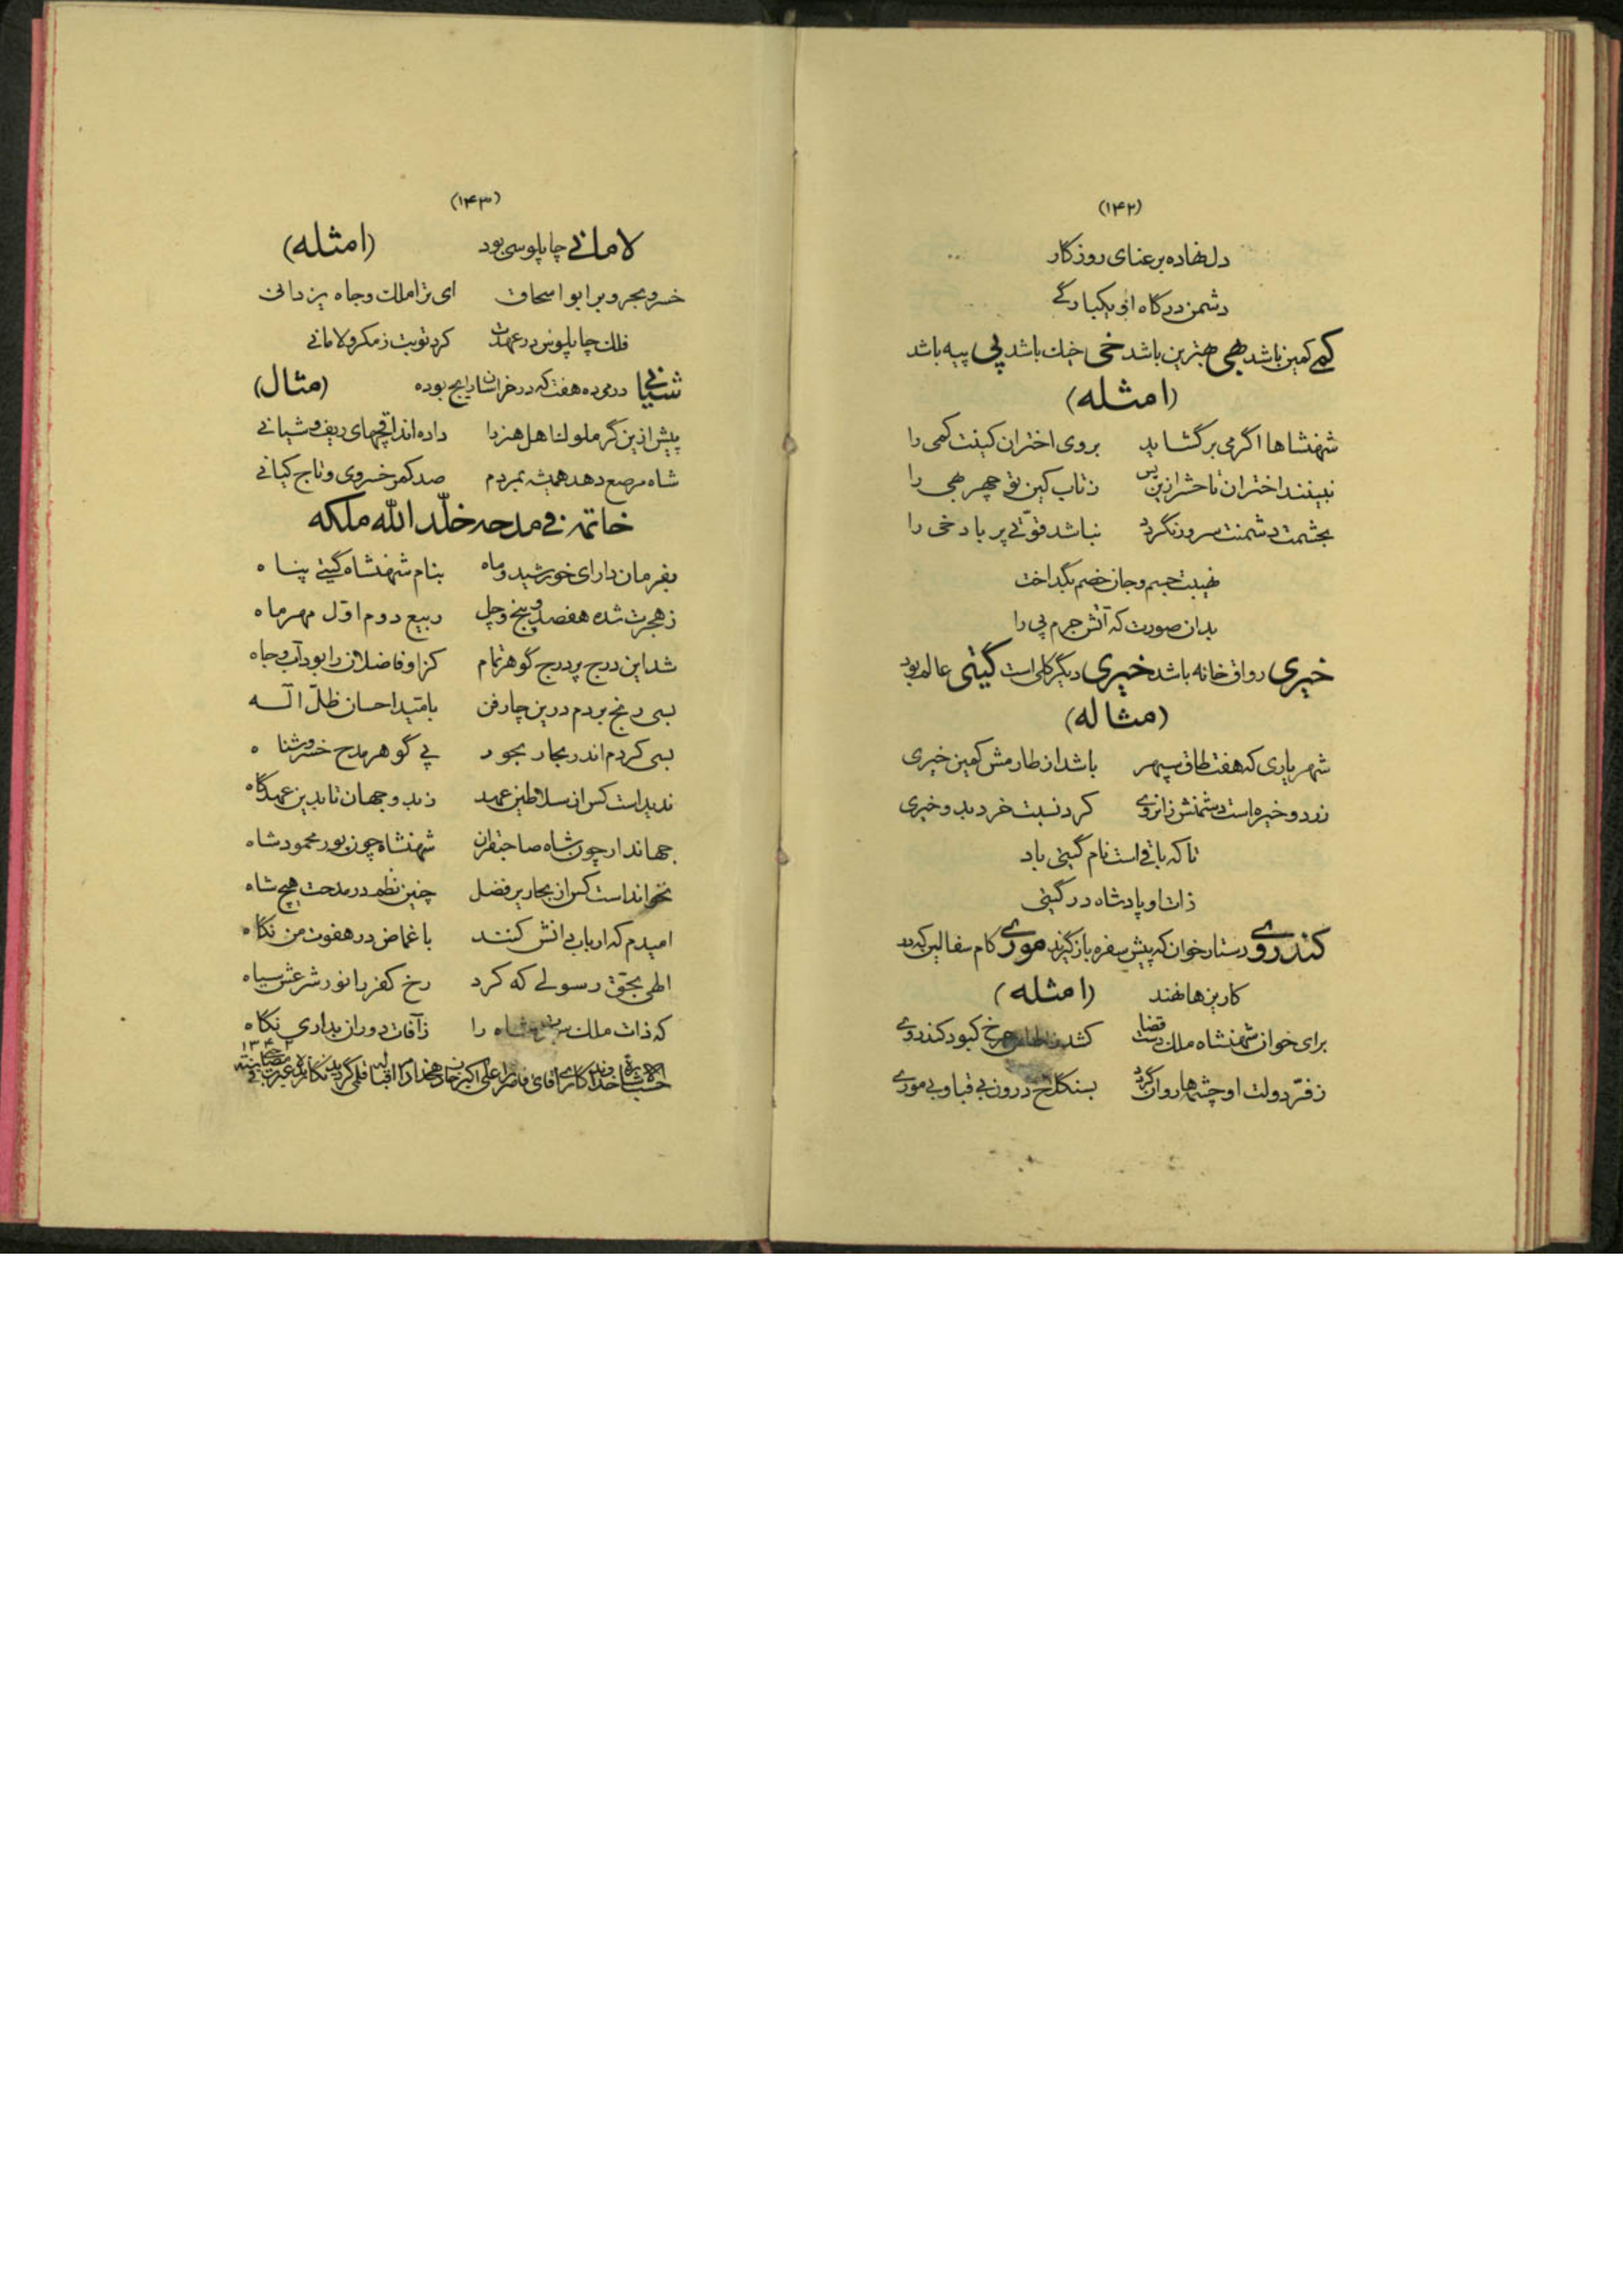 (۱۴۲)
دل نهاده بر عنای روزگار
دشمن درگاه او یکبارگی
کهی کمین باشد بهی بهترین باشد خی خیك باشد پی پیه باشد
(امثله)
شهنشاها اگر می برگشاید بروی اختران کینت کمی را
نبینند اختران تا حشر ازین پس زتاب کین تو چهر بهی را
بجشمت دشمنت سرور نگردد نباشد قوّتی پر باد خی را
نهیبت جسم و جان خصم بگداخت
بدان صورت که آتش جرم پی را
خیری رواق خانه باشد خیری دیگر گلی است گیتی عالم بود
(مثاله)
شهریاری که هفت طاق سپهر باشد از طارمش کمین خیری
زرد و خیره است دشمنش زانروی کرد نسبت خرد بدو خیری
تا که باقی است نام گیتی باد
ذات او پادشاه در گیتی
کندروی دستارخوان که پیش سفره بازگیرند موری کام سفالین که در
کاریزها نهند (امثله)
برای خوان شهنشاه ملك دست قضا کشد چرخ کبود کندروی
زفرّ دولت او چشمها روان گردد بسنگلاخ درون بی قبا و بی موری
(۱۴۳)
لامانی چاپلوسی بود (امثله)
خسرو بحر و بر ابو اسحاق ای ترا ملك و جاه یزدانی
فلك چاپلوس در عهدت کرد توبت زمکر و لامانی
شیانی درمی ده هفت که در خراسان رایج بوده (مثال)
پیش ازین گر ملوك اهل هنر را داده اند اقچهای زیف و شیانی
شاه مرصع دهد همیشه بمردم صد کمر خسروی و تاج کیانی
خاتمه فی مدحه خلّد اللّه ملکه
بفرمان دارای خورشید و ماه بنام شهنشاه گیتی پناه
زهجرت شده هفصد و پنج و چل ربیع دوم اوّل مهر ماه
شد این درج پر درج گوهر تمام کز او فاضلان را بود آب و جاه
بسی رنج بردم درین چار فن بامّید احسان ظلّ اله
بسی کردم اندر بحار بحور پی گوهر مدح خسرو شناه
ندیداست کس از سلاطین عهد زبدو جهان تا بدین عهدگاه
جهاندار چون شاه صاحبقران شهنشاه چون پور محمود شاه
نخوانداست کس از بحار پر فضل چنین نظم در مدحت هیچ شاه
امیدم که ارباب دانش کنند باغماض در هفوت من نگاه
الهی بحق رسولی که کرد رخ کفر را نور شرعش سیاه
که ذات ملك شاه را زآفات دوران بداری نگاه
حسب خداوندگاری آقای علی اکبر خان قلمی گردید
۱۳۴۲